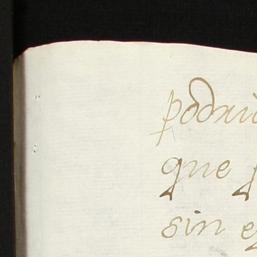 podriu
que
sin e